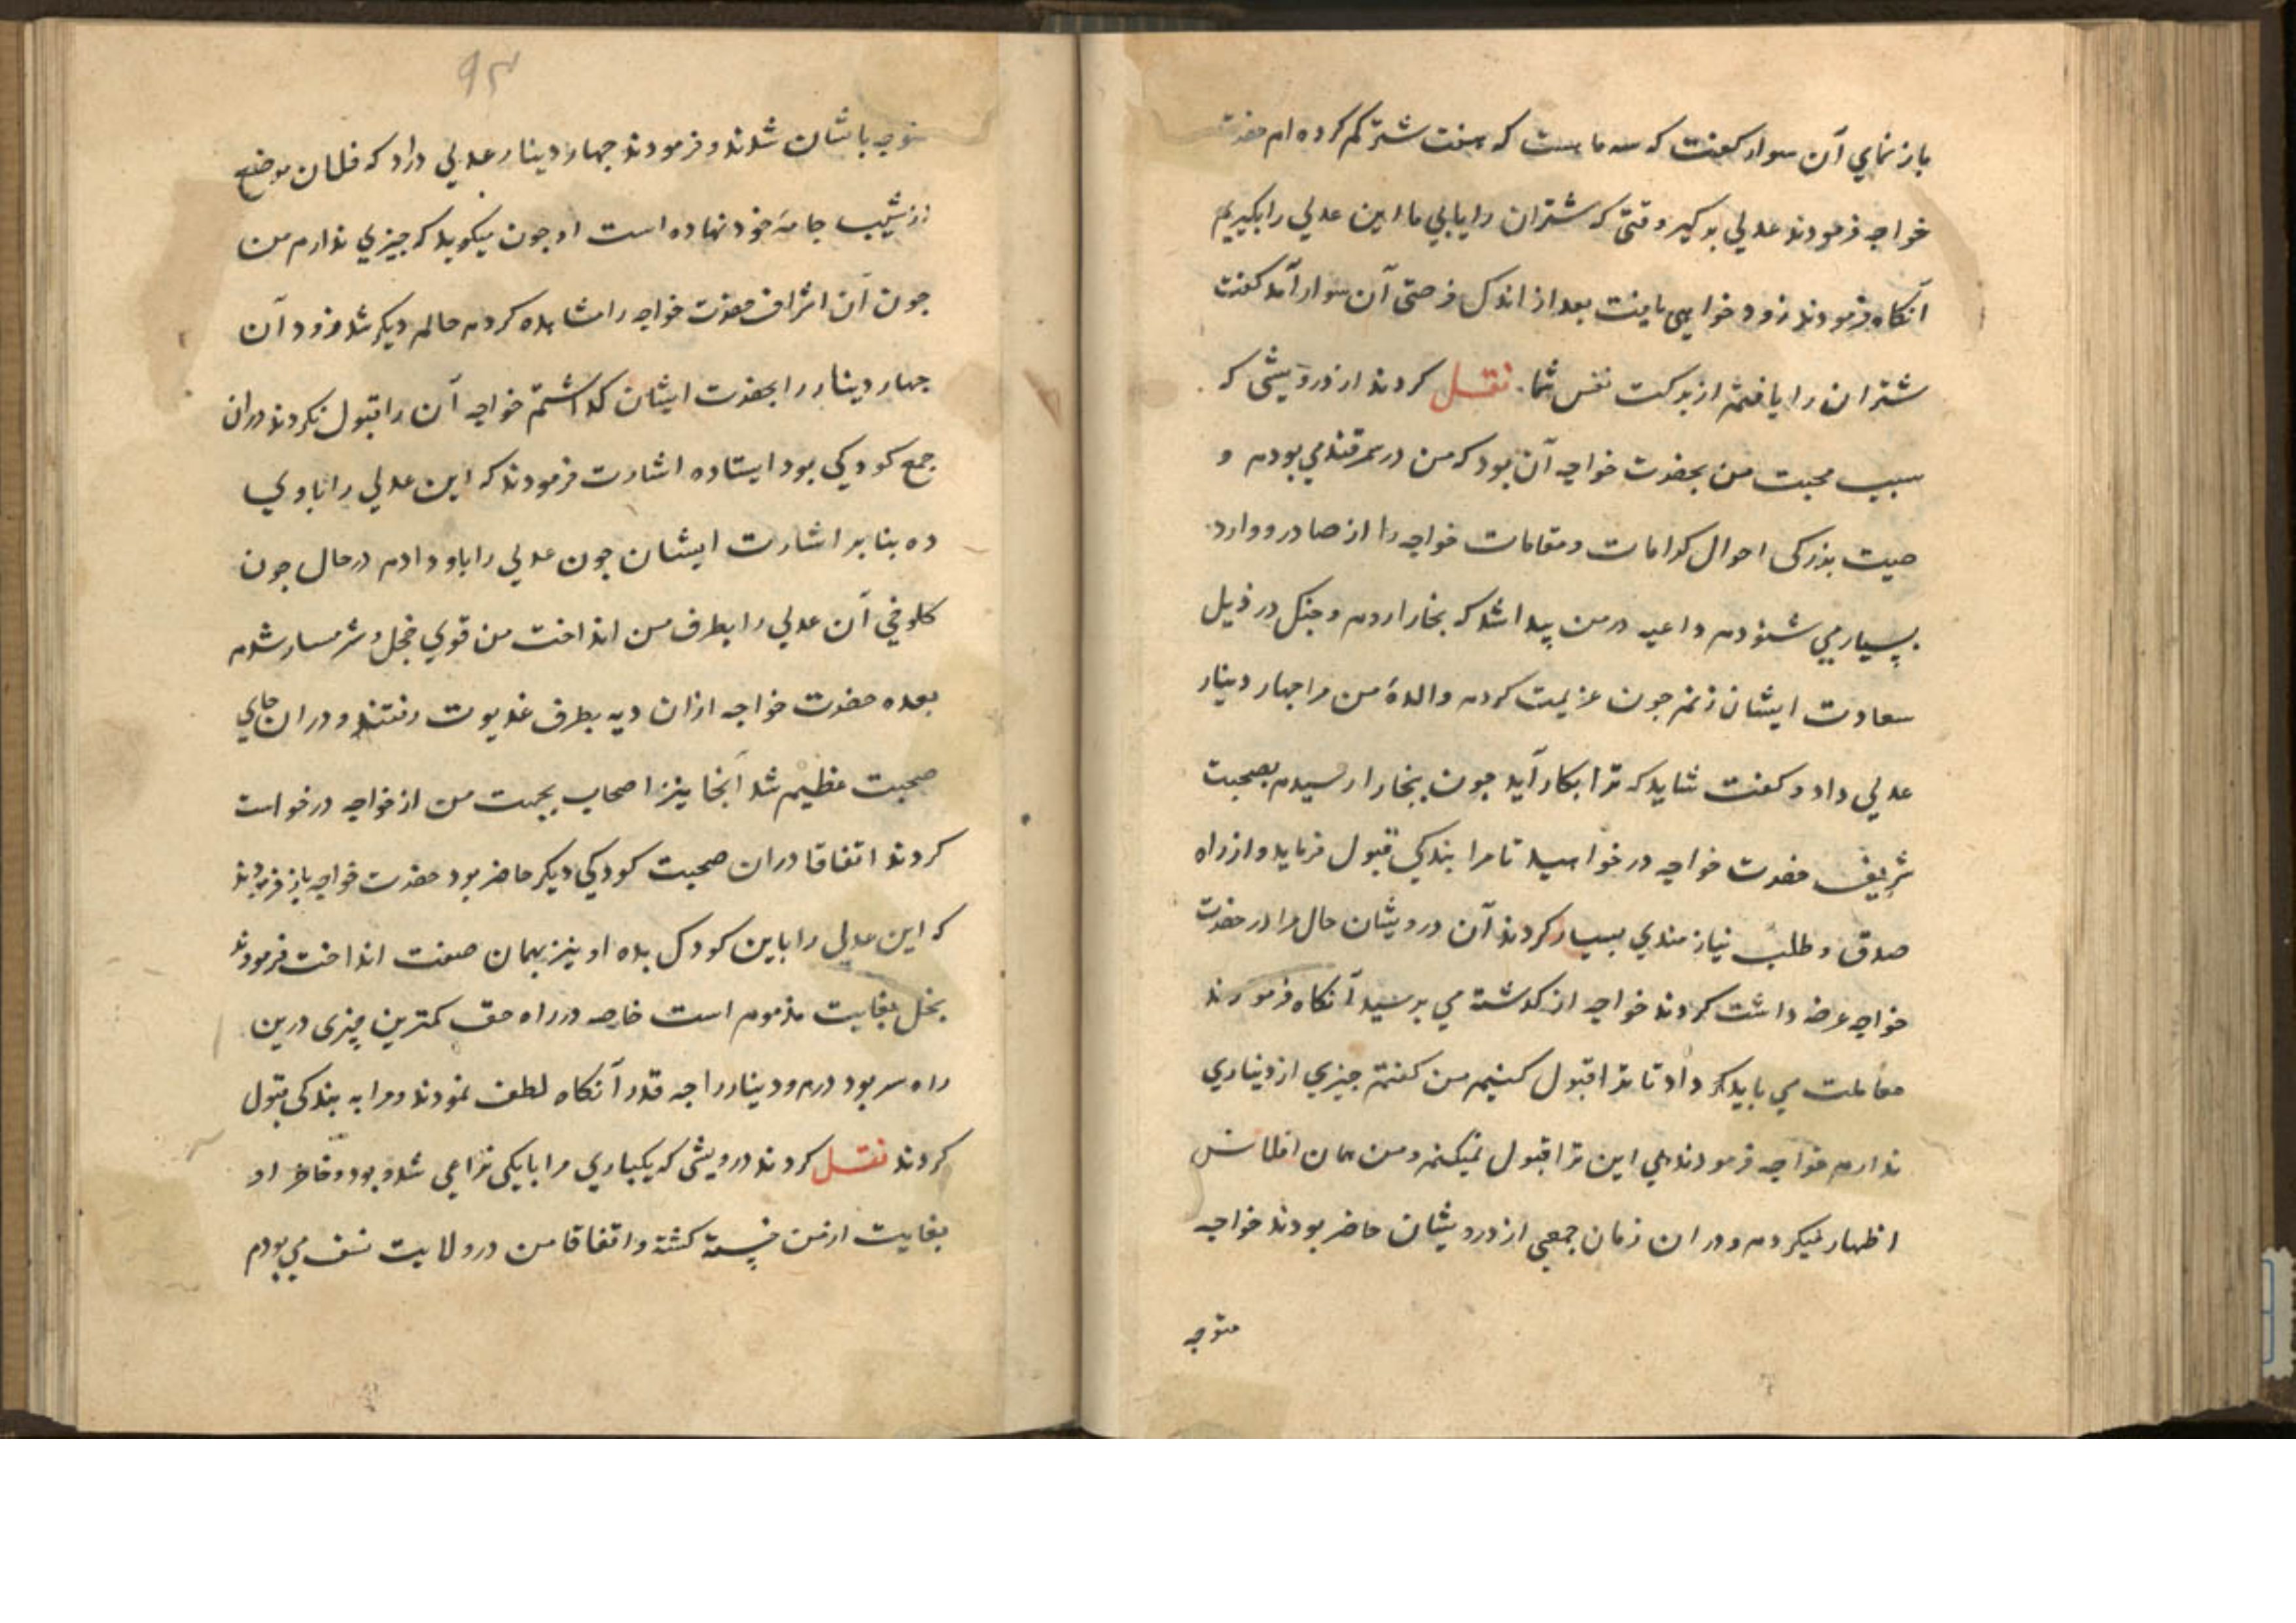 باز نماي آن سوار كفت كه سه ما هست كه هفت شتر كم كرده ام حضرت
خواجه فرمودند عدلي بركير وقتى كه شتران را يابي ما اين عدلي را بكيريم
آنكاه فرمودند زود خواهى يافت بعد از اندك فرصتى آن سوار آمد كفت
شتران را يافتم از بركت نفس شما نقل كردند از درويشى كه
سبب محبت من بحضرت خواجه آن بود كه من در سمرقند مي بودم و
صيت بزركى احوال كرامات و مقامات خواجه را از صادر و وارد
بسيار مي شنودم داعيه در من پيدا شد كه بخارا روم و چنك در ذيل
سعادت ايشان زنم جون عزيمت كردم والدۀ من مرا جهار دينار
عدلي داد و كفت شايد كه ترا بكار آيد جون ببخارا رسيدم بصحبت
شريف حضرت خواجه در خواهيد تا مرا بندكي قبول فرمايد و از راه
صدق و طلب نياز مندي بسيار كردند آن درويشان حال مرا در حضرت
خواجه عرضه داشت كردند خواجه از كذشته مي پرسيد آنكاه فرمودند
معاملت مي بايد كرد داد تا ترا قبول كنيم من كفتم جيزي از ديناري
ندارم خواجه فرمودند بلي اين ترا قبول نميكنم و من همان افلاس
اظهار ميكردم و در ان زمان جمعي از درويشان حاضر بودند خواجه
متوجه
۹۳
متوجه باشان شدند و فرمودند جهار دينار عدلي دارد كه فلان موضع
از شيب جامۀ خود نهاده است او جون ميكويد كه جيزي ندارم من
جون آن اشراف حضرت خواجه را مشاهده كردم حالم ديكر شد فرود آن
جهار دينار را بحضرت ايشان كذاشتم خواجه آن را قبول نكردند دران
جمع كودكي بود ايستاده اشارت فرمودند كه اين عدلي را باوي
ده بنا بر اشارت ايشان جون عدلي را باو دادم در حال جون
كلوخي آن عدلي را بطرف من انداخت من قوي خجل و شرمسار شدم
بعده حضرت خواجه ازان ديه بطرف غديوت رفتند و دران جاي
صحبت عظيم شد آنجا نيز اصحاب بجهت من از خواجه درخواست
كردند اتفاقا دران صحبت كودكي ديكر حاضر بود حضرت خواجه باز فرمودند
كه اين عدلي را باين كودك بده او نيز بهمان صفت انداخت فرمودند
بخل بغايت مذموم است خاصه در راه حق كمترين چيزى درين
راه سر بود درم و دينار را جه قدر آنكاه لطف نمودند و مرا به بندكى قبول
كردند نقل كردند درويشى كه يكباري مرا با يكى نزاعي شده بود و خاطر او
بغايت از من خسته كشته و اتفاقا من در ولايت نسف مي بودم